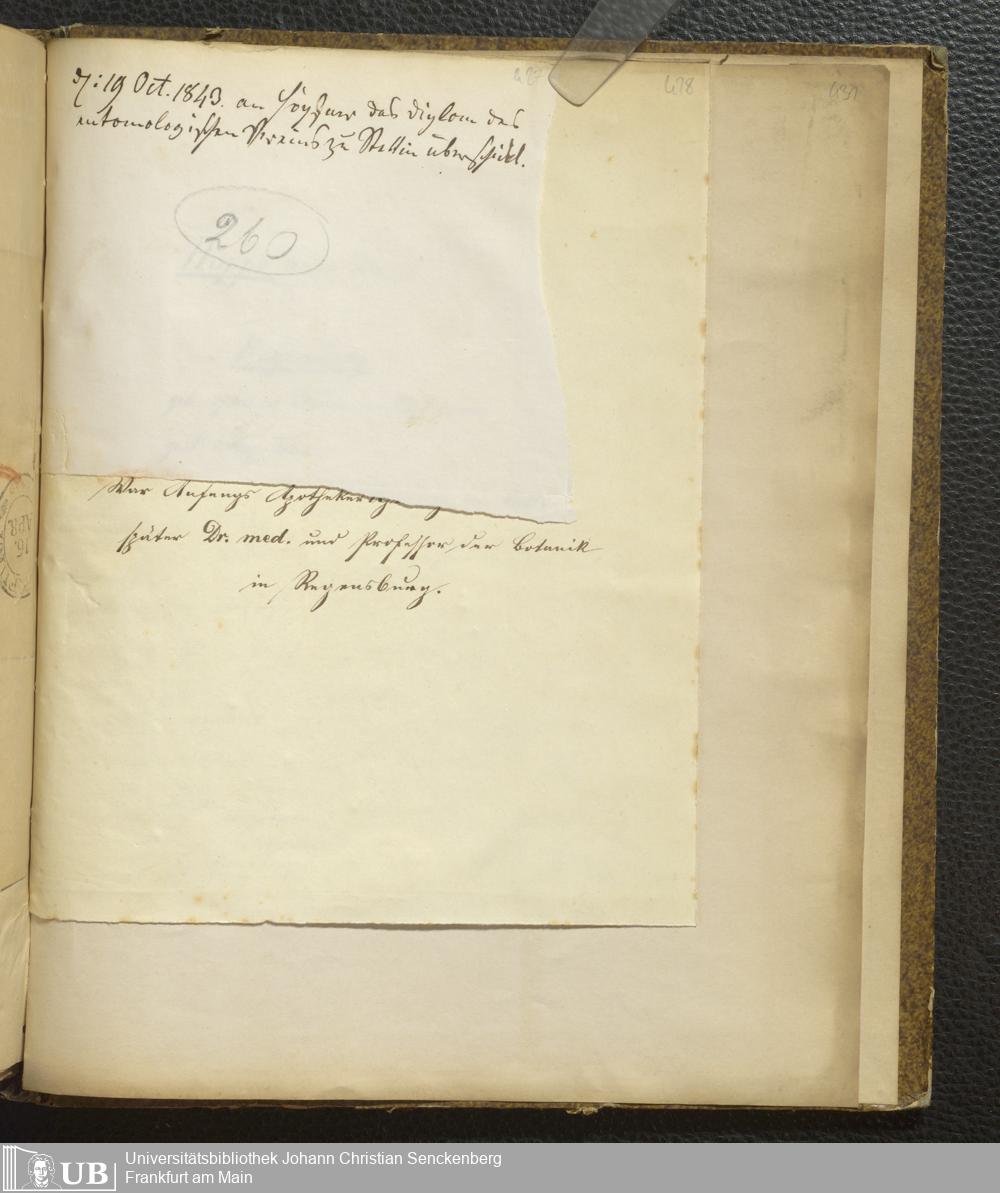 19 Oct. 1843. an das Diplom des
entomologischen Vereins zu Stettin überschickt.
260
War Anfangs
später Dr. med. und Professor der Botanik
in Regensburg.
427
428
431
16
APR
UB
Universitätsbibliothek Johann Christian Senckenberg
Frankfurt am Main